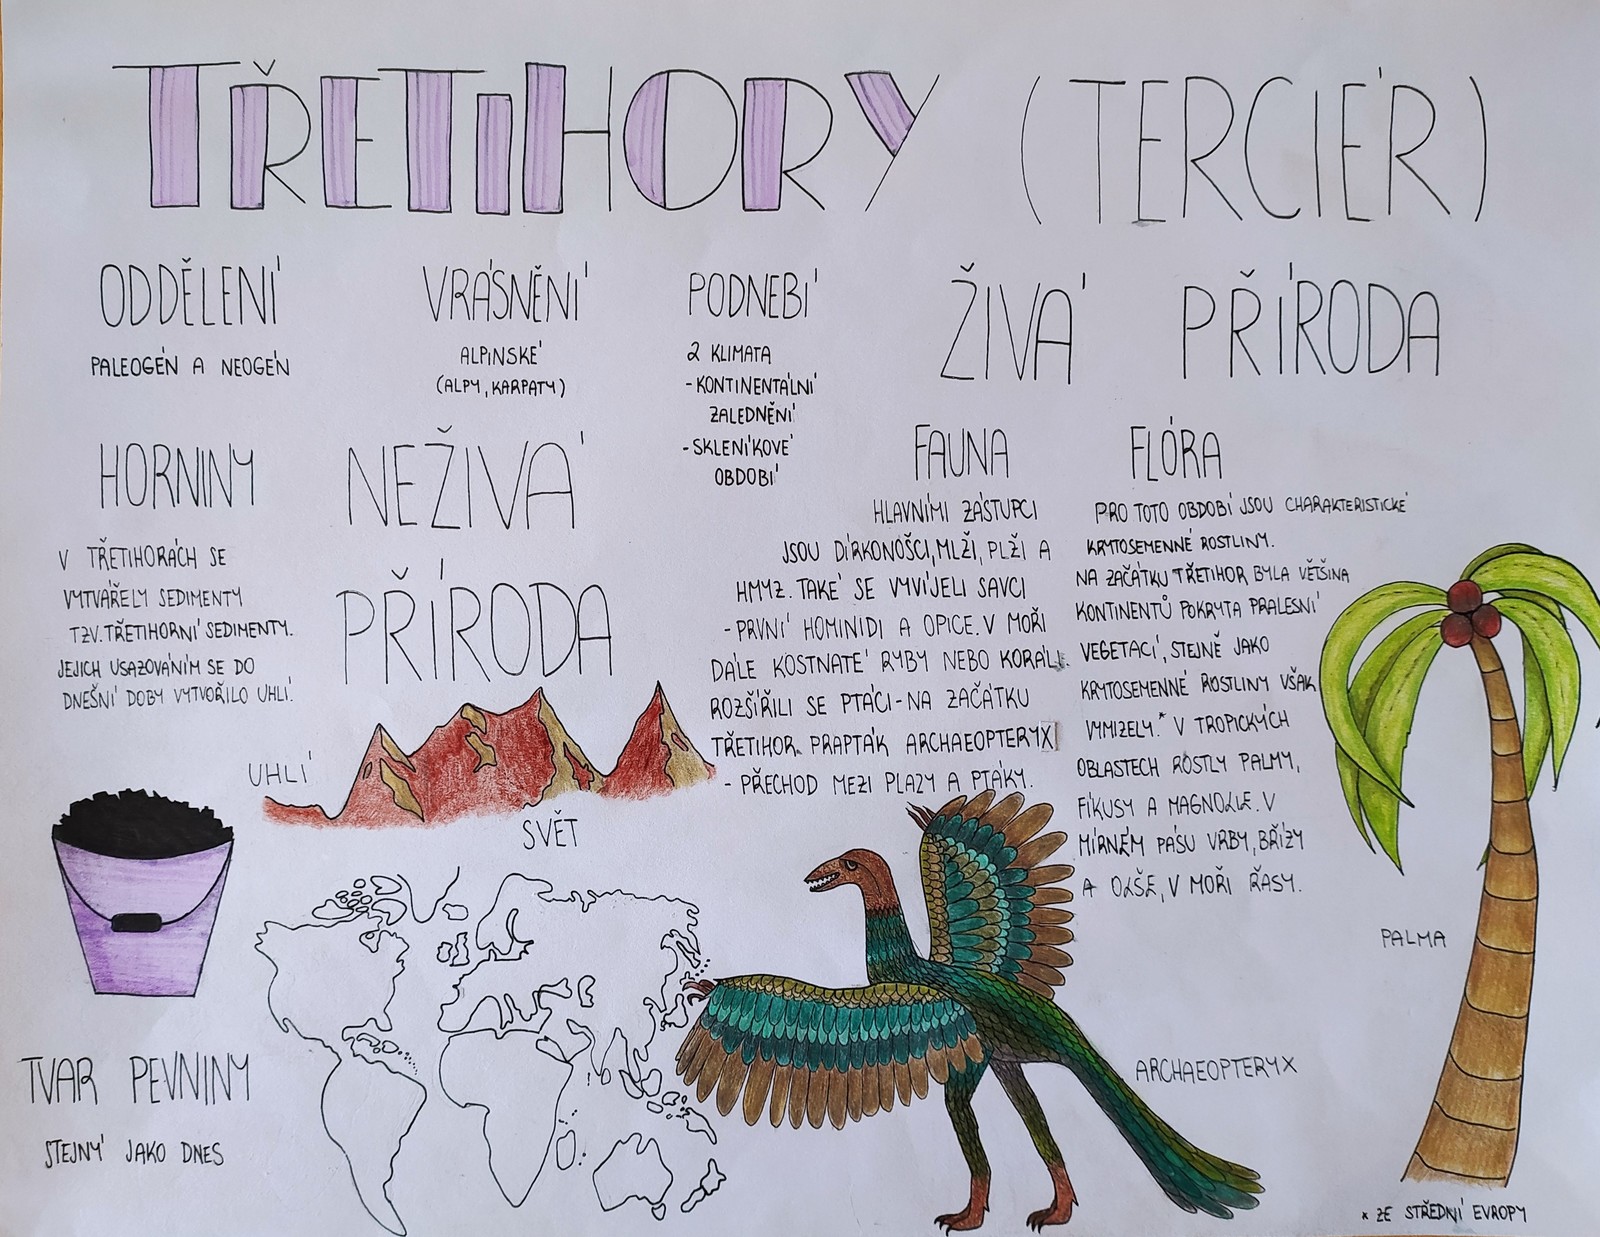 TŘETIHORY (TERCIÉR)
ODDĚLENÍ
PALEOGÉN A NEOGÉN
VRÁSNĚNÍ
ALPINSKÉ
(ALPY, KARPATY)
PODNEBÍ
2 KLIMATA
-KONTINENTÁLNÍ
ZALEDNĚNÍ
-SKLENÍKOVÉ
OBDOBÍ
HORNINY
V TŘETIHORÁCH SE
VYTVÁŘELY SEDIMENTY
TZV. TŘETIHORNÍ SEDIMENTY.
JEJICH USAZOVÁNÍM SE DO
DNEŠNÍ DOBY VYTVOŘILO UHLÍ.
NEŽIVÁ
PŘÍRODA
UHLÍ
SVĚT
TVAR PEVNINY
STEJNÝ JAKO DNES
ŽIVÁ PŘÍRODA
FAUNA
HLAVNÍMI ZÁSTUPCI
JSOU DÍRKONOŠCI, MLŽI, PLŽI A
HMYZ. TAKÉ SE VYVÍJELI SAVCI
-PRVNÍ HOMINIDI A OPICE. V MOŘI
DÁLE KOSTNATÉ RYBY NEBO KORÁLI.
ROZŠÍŘILI SE PTÁCI-NA ZAČÁTKU
TŘETIHOR PRAPTÁK ARCHAEOPTERYX
- PŘECHOD MEZI PLAZY A PTÁKY.
FLÓRA
PRO TOTO OBDOBÍ JSOU CHARAKTERISTICKÉ
KRYTOSEMENNÉ ROSTLINY.
NA ZAČÁTKU TŘETIHOR BYLA VĚTŠINA
KONTINENTŮ POKRYTA PRALESNÍ
VEGETACÍ, STEJNĚ JAKO
KRYTOSEMENNÉ ROSTLINY VŠAK
VYMIZELY.* V TROPICKÝCH
OBLASTECH ROSTLY PALMY,
FÍKUSY A MAGNOLIE. V
MÍRNÉM PÁSU VRBY, BŘÍZY
A OLŠE, V MOŘI ŘASY.
PALMA
ARCHAEOPTERYX
* ZE STŘEDNÍ EVROPY